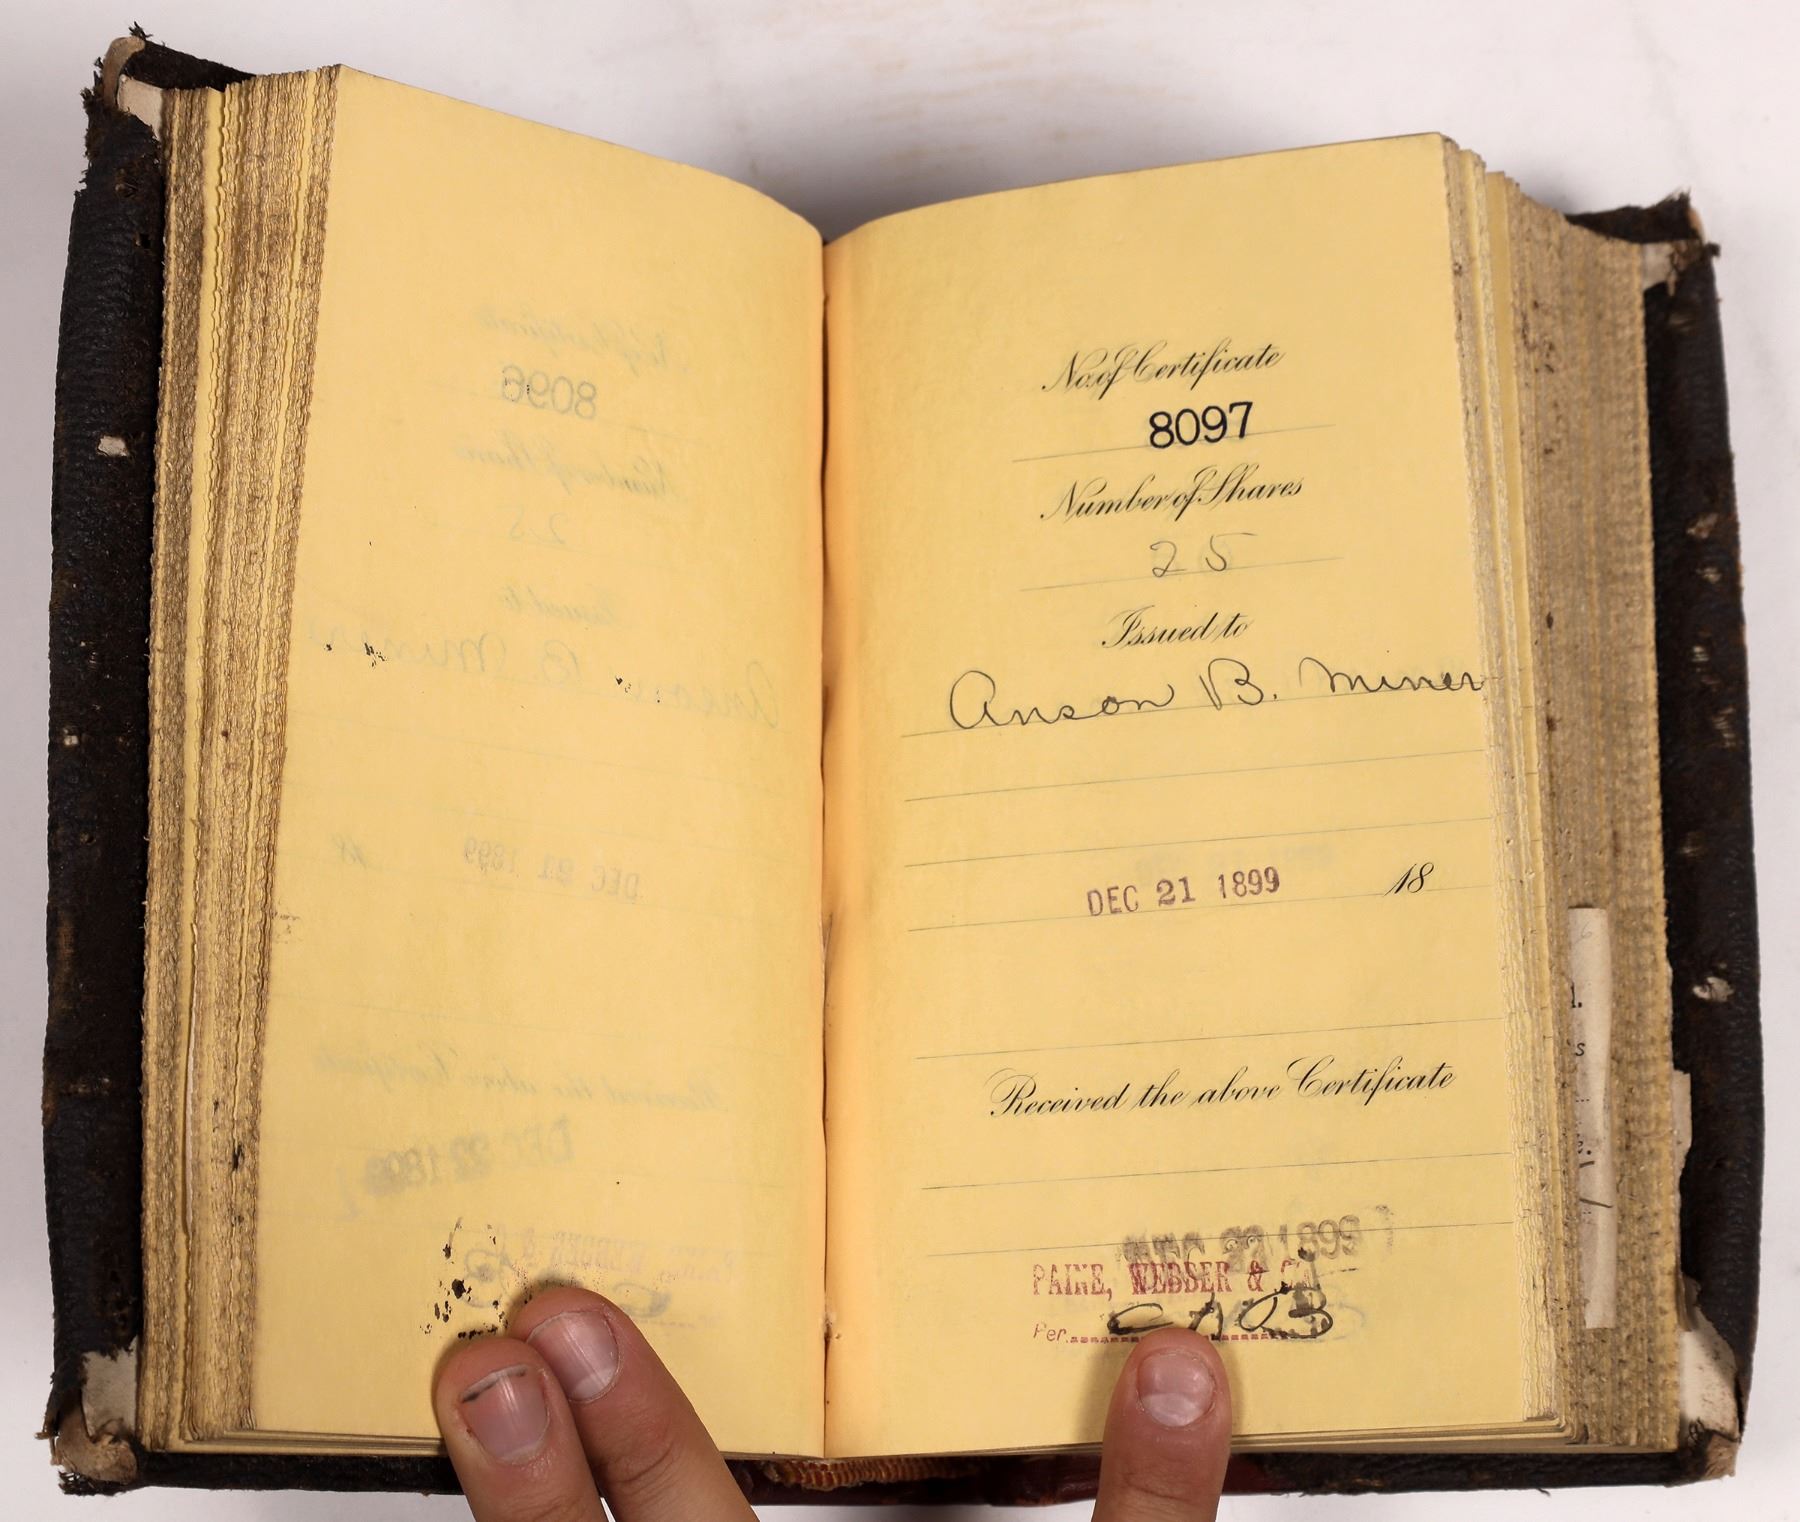 No. of Certificate
8097
Number of Shares
25
Issued to
Anson B. Miner
DEC 21 1899 18
Received the above Certificate
DEC 22 1899
PAINE, WEBBER & CO.
Per